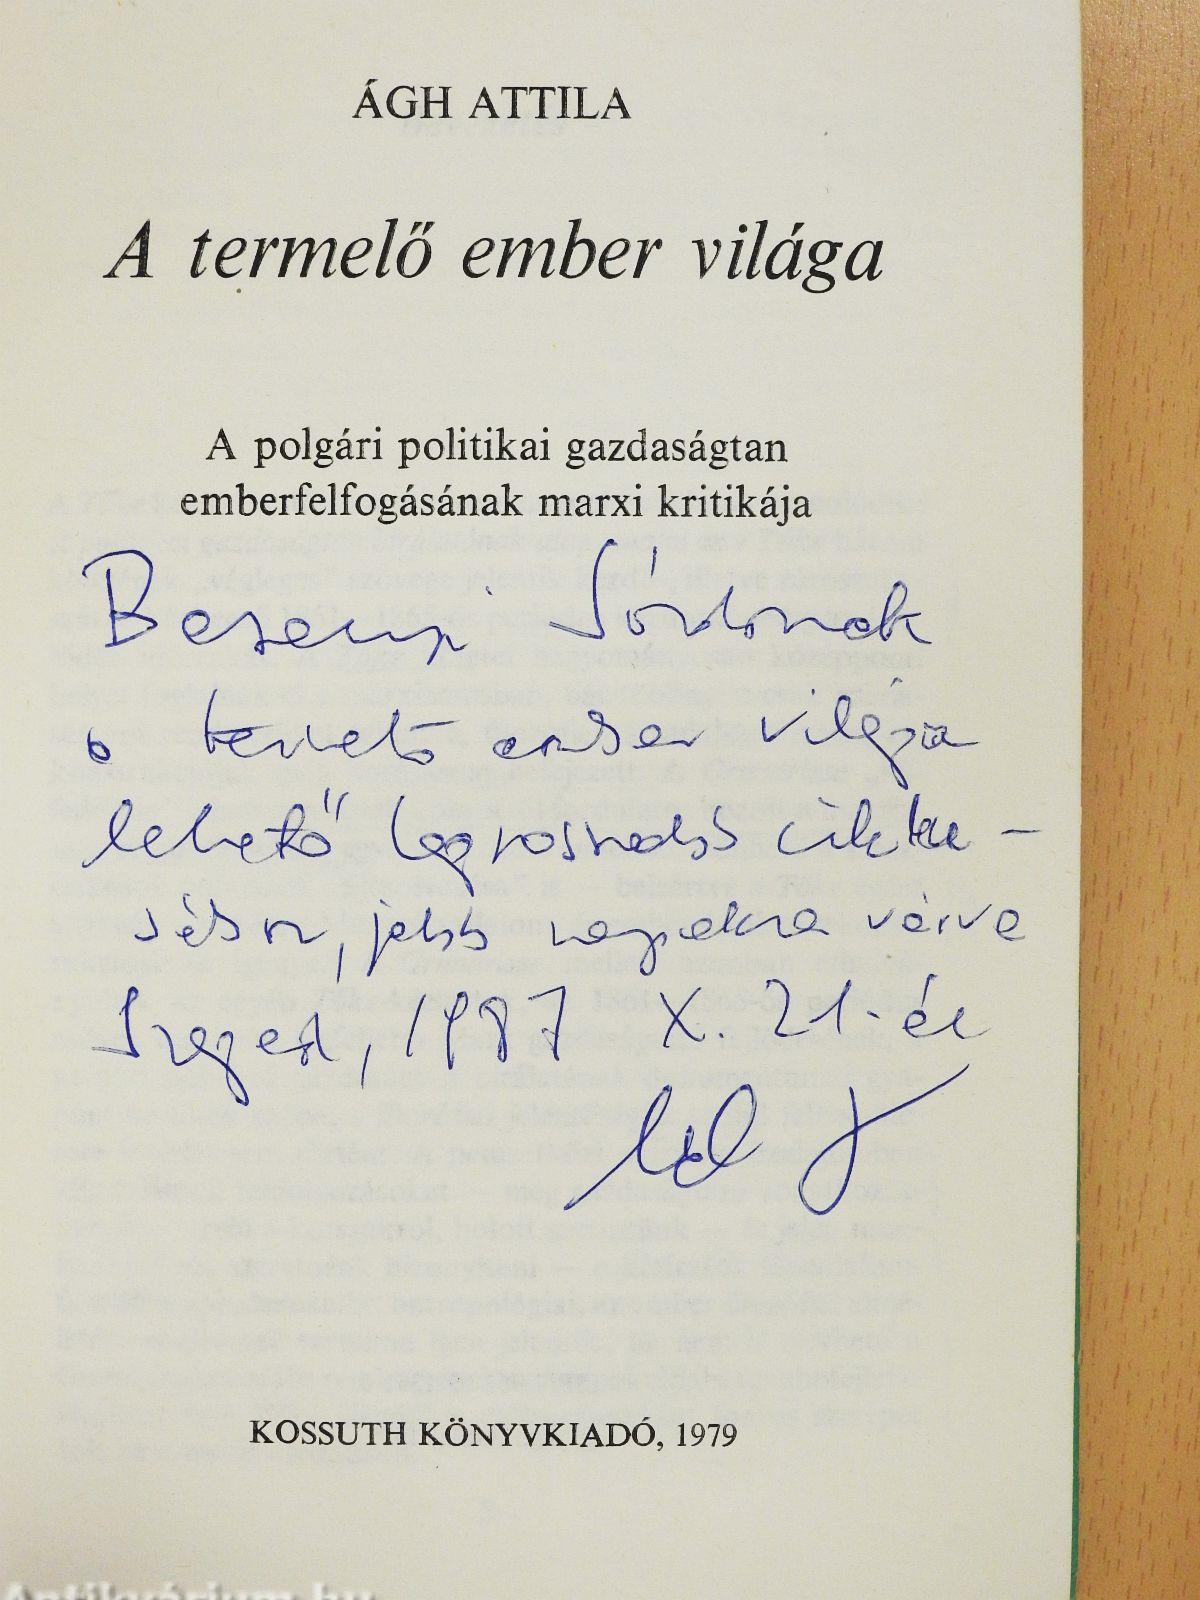 ÁGH ATTILA
A termelő ember világa
A polgári politikai gazdaságtan
emberfelfogásának marxi kritikája
Besenyi Sándornak
a termelő ember világa
lehető legrosszabb ciklu-
sában, jobb napokra várva
Szeged, 1987 X. 21-én
KOSSUTH KÖNYVKIADÓ, 1979
Antikvárium.hu